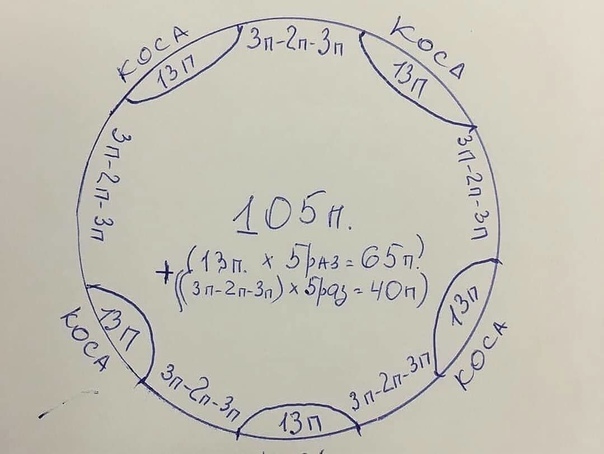 КОСА
3п-2п-3п
КОСА
13п
13п
3п-2п-3п
3п-2п-3п
105п.
(13п. х 5раз = 65п.)
+((3п-2п-3п) х 5раз = 40п)
13п
13п
КОСА
КОСА
3п-2п-3п
3п-2п-3п
13п